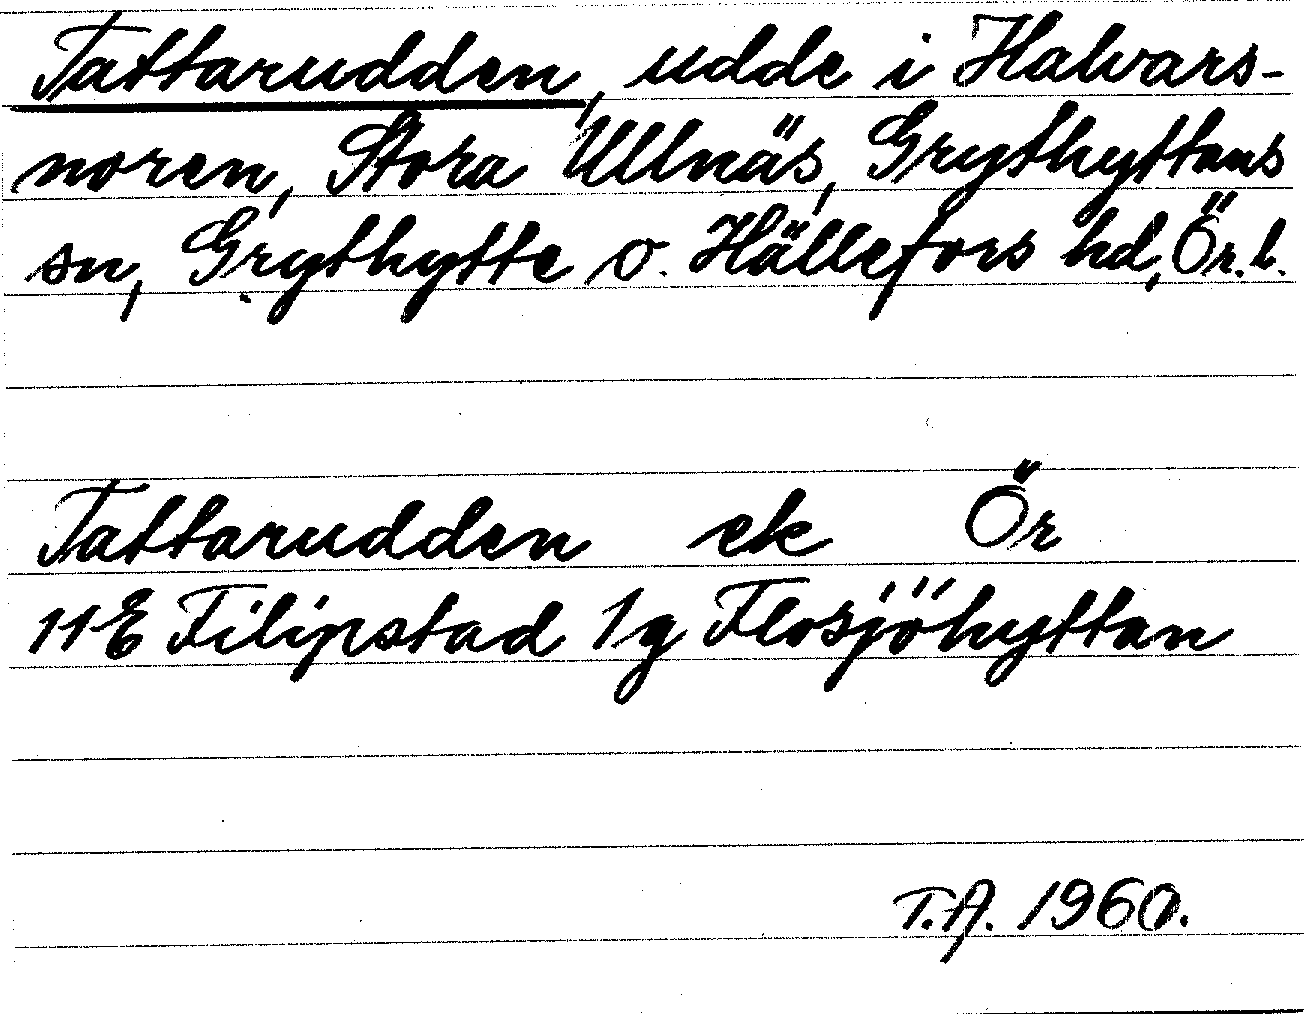 Tattarudden, udde i Halvars-
noren, Stora Ullnäs, Grythyttans
sn, Grythytte o. Hällefors hd, Ör. l.
Tattarudden ek Ör
11E Filipstad 1g Flosjöhyttan
T.A. 1960.